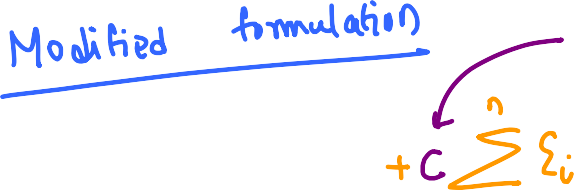 Modified formulation
+ C ∑ⁿ ξᵢ